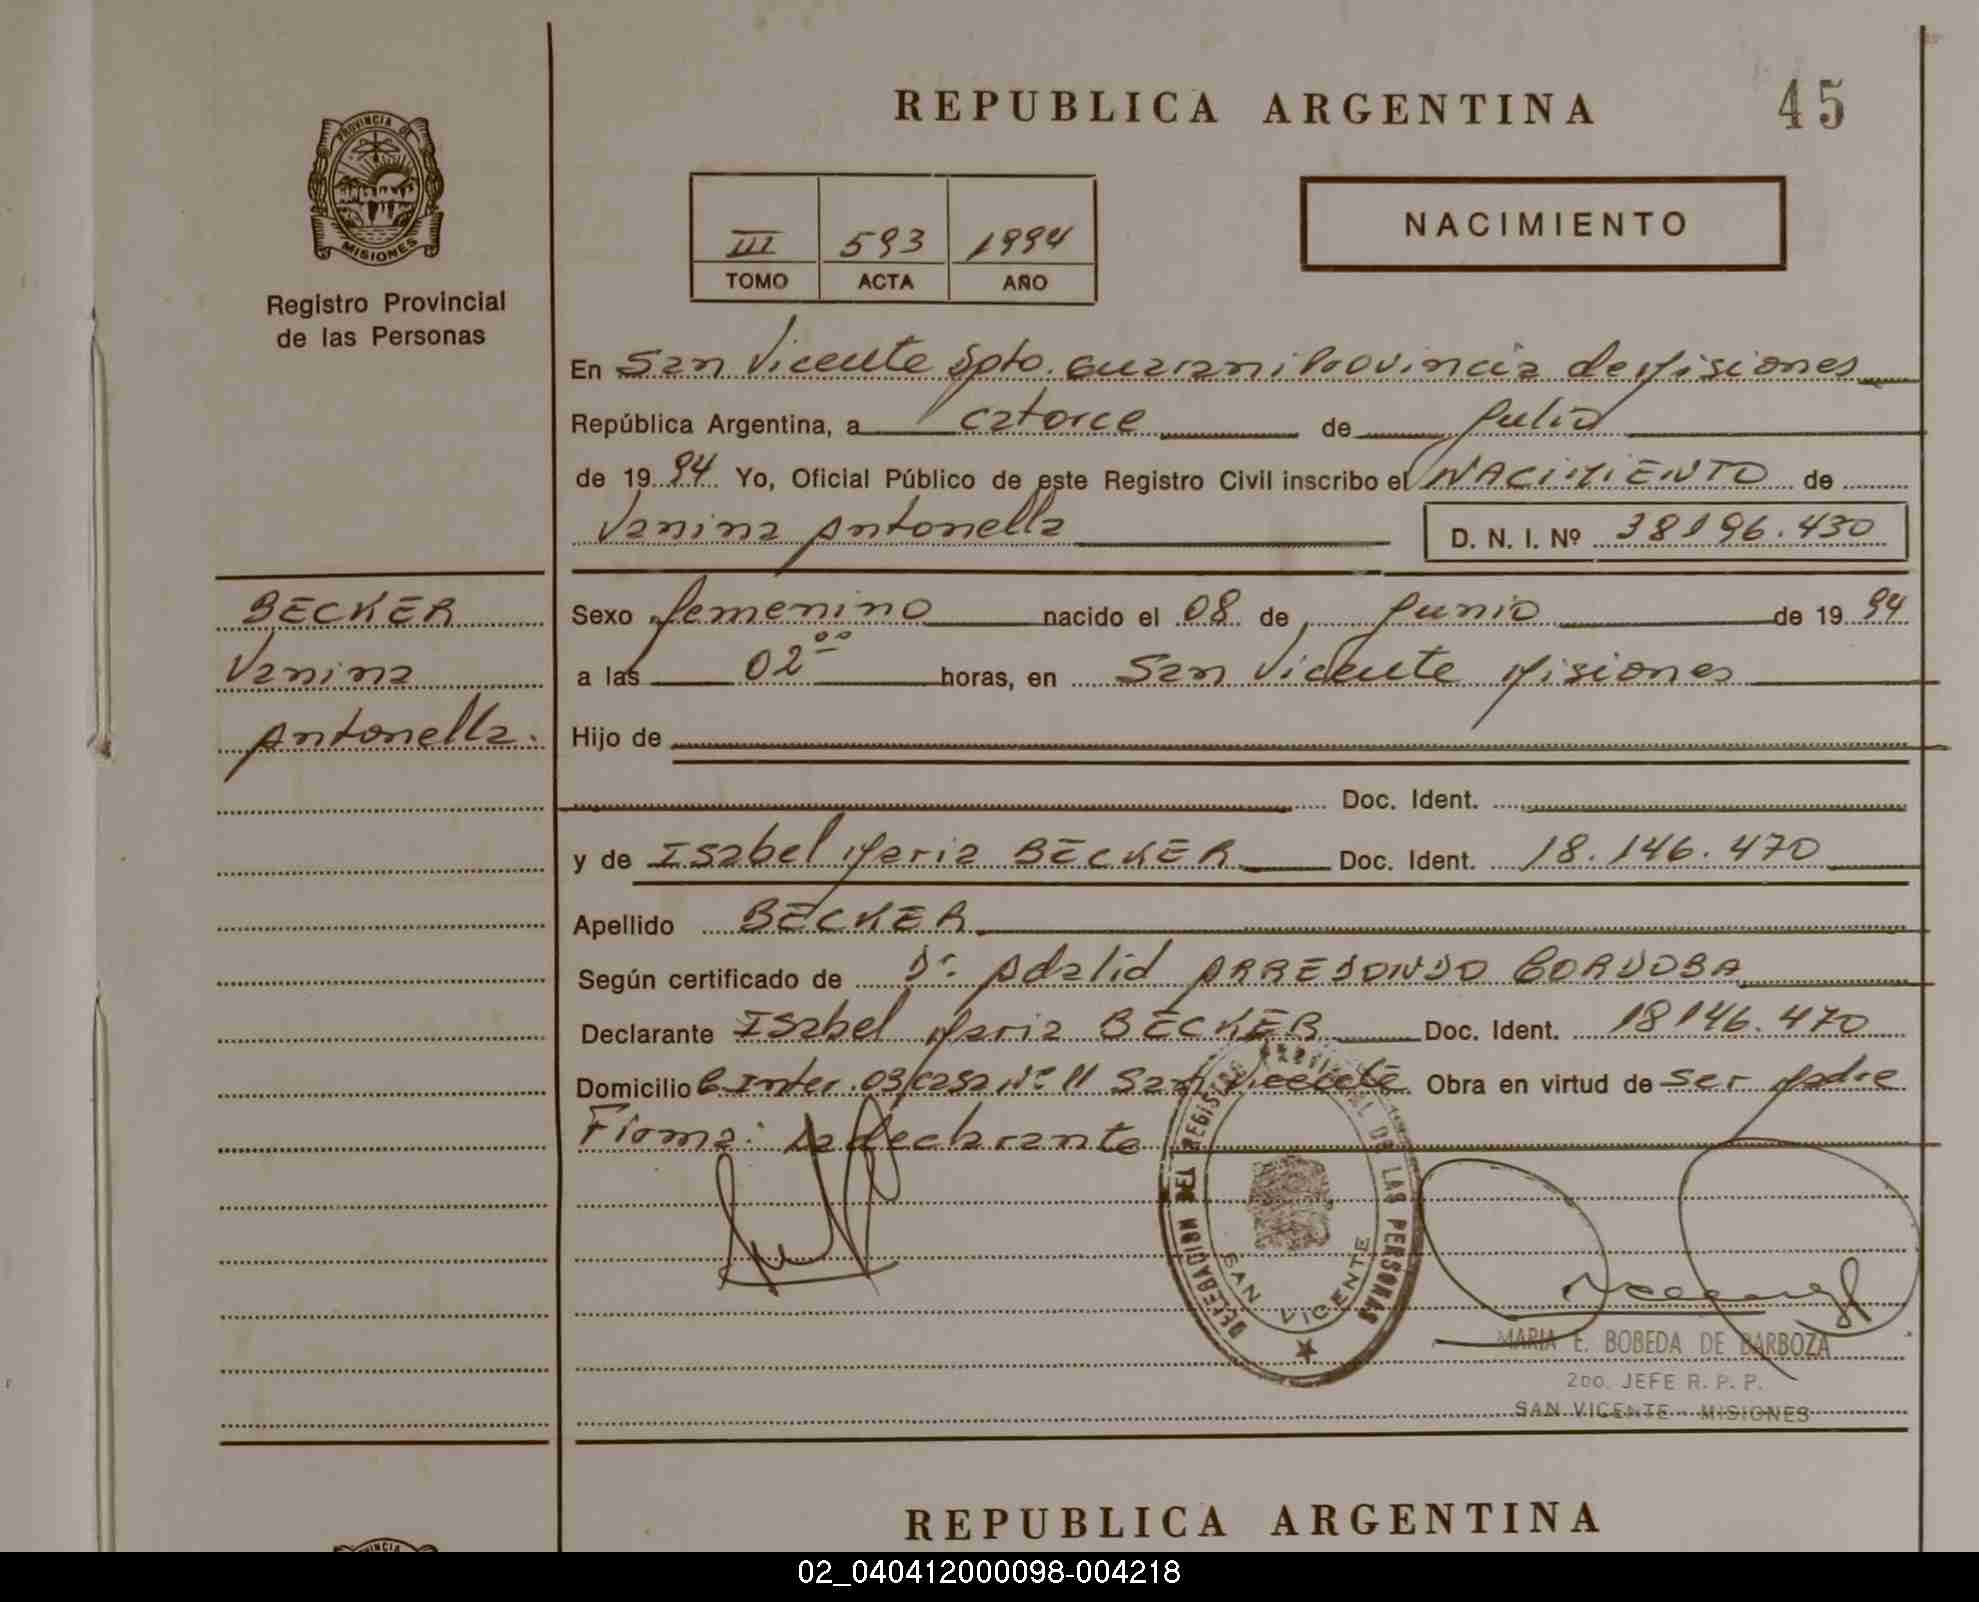 REPUBLICA ARGENTINA
45
PROVINCIA DE
MISIONES
Registro Provincial
de las Personas
III 593 1994
TOMO ACTA AÑO
NACIMIENTO
En San Vicente Dpto. Guarani Provincia de Misiones
República Argentina, a catorce de Julio
de 1994 Yo, Oficial Público de este Registro Civil inscribo el NACIMIENTO de
Vanina Antonella
D. N. I. Nº 38196.430
BECKER
Vanina
Antonella.
Sexo femenino nacido el 08 de Junio de 1994
a las 02⁰⁰ horas, en San Vicente Misiones
Hijo de
Doc. Ident.
y de Isabel Maria BECKER Doc. Ident. 18.146.470
Apellido BECKER
Según certificado de Dr. Adalid ARREDONDO CORDOBA
Declarante Isabel Maria BECKER Doc. Ident. 18146.470
Domicilio B. Inter. 03 casa Nº 11 San Vicente Obra en virtud de ser Madre
Firma: La declarante
DELEGACION DEL REGISTRO PROVINCIAL DE LAS PERSONAS
SAN VICENTE
MARIA E. BOBEDA DE BARBOZA
2DO. JEFE R. P. P.
SAN VICENTE - MISIONES
REPUBLICA ARGENTINA
02_040412000098-004218